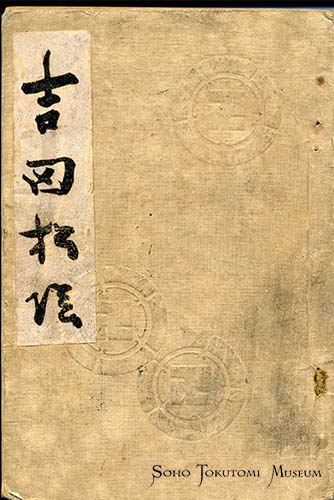 吉田松陰
SOHO TOKUTOMI MUSEUM